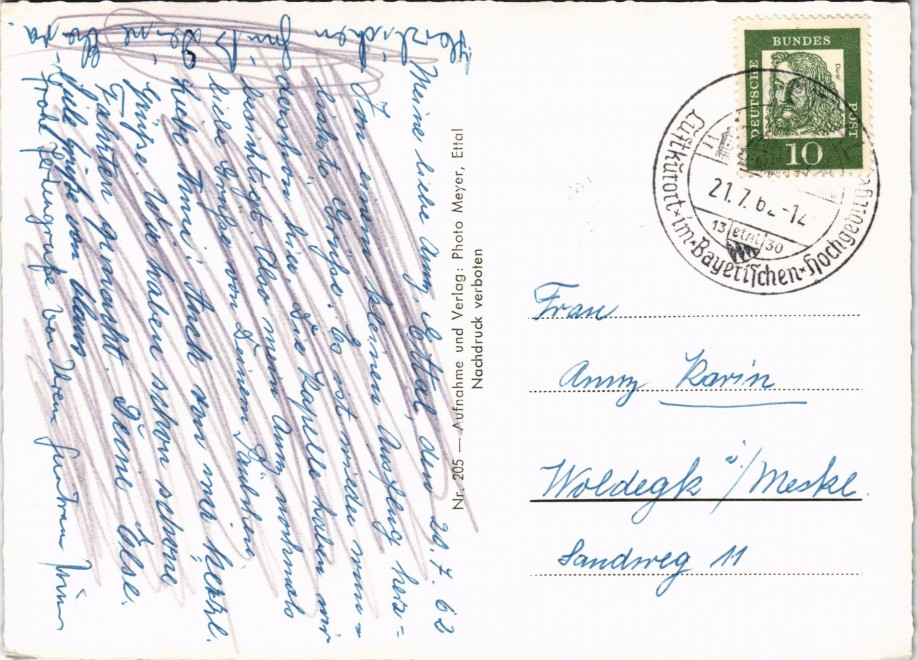 Meine liebe Anny. Ettal, den 20.7.62
Von einem kleinen Ausflug herz-
lichste Grüße. Es ist wieder wun-
derschön hier. Die Kapelle haben wir
besichtigt. Also meine Anny nochmals
liebe Grüße von Deinem
Liebe Anni! Auch von mir herzl.
Grüße. Wir haben schon schöne
Fahrten gemacht. Deine Else.
Viele Grüße von
von Ihrem
Herzlichen
Gruß Deine
Nr. 205 — Aufnahme und Verlag: Photo Meyer, Ettal
Nachdruck verboten
DEUTSCHE BUNDES POST
Dürer
10
Luftkurort · im · Bayerischen · Hochgebirge
21.7.62-12
13 etal 30
Frau
Anny Karin
Woldegk i/Meckl.
Sandweg 11